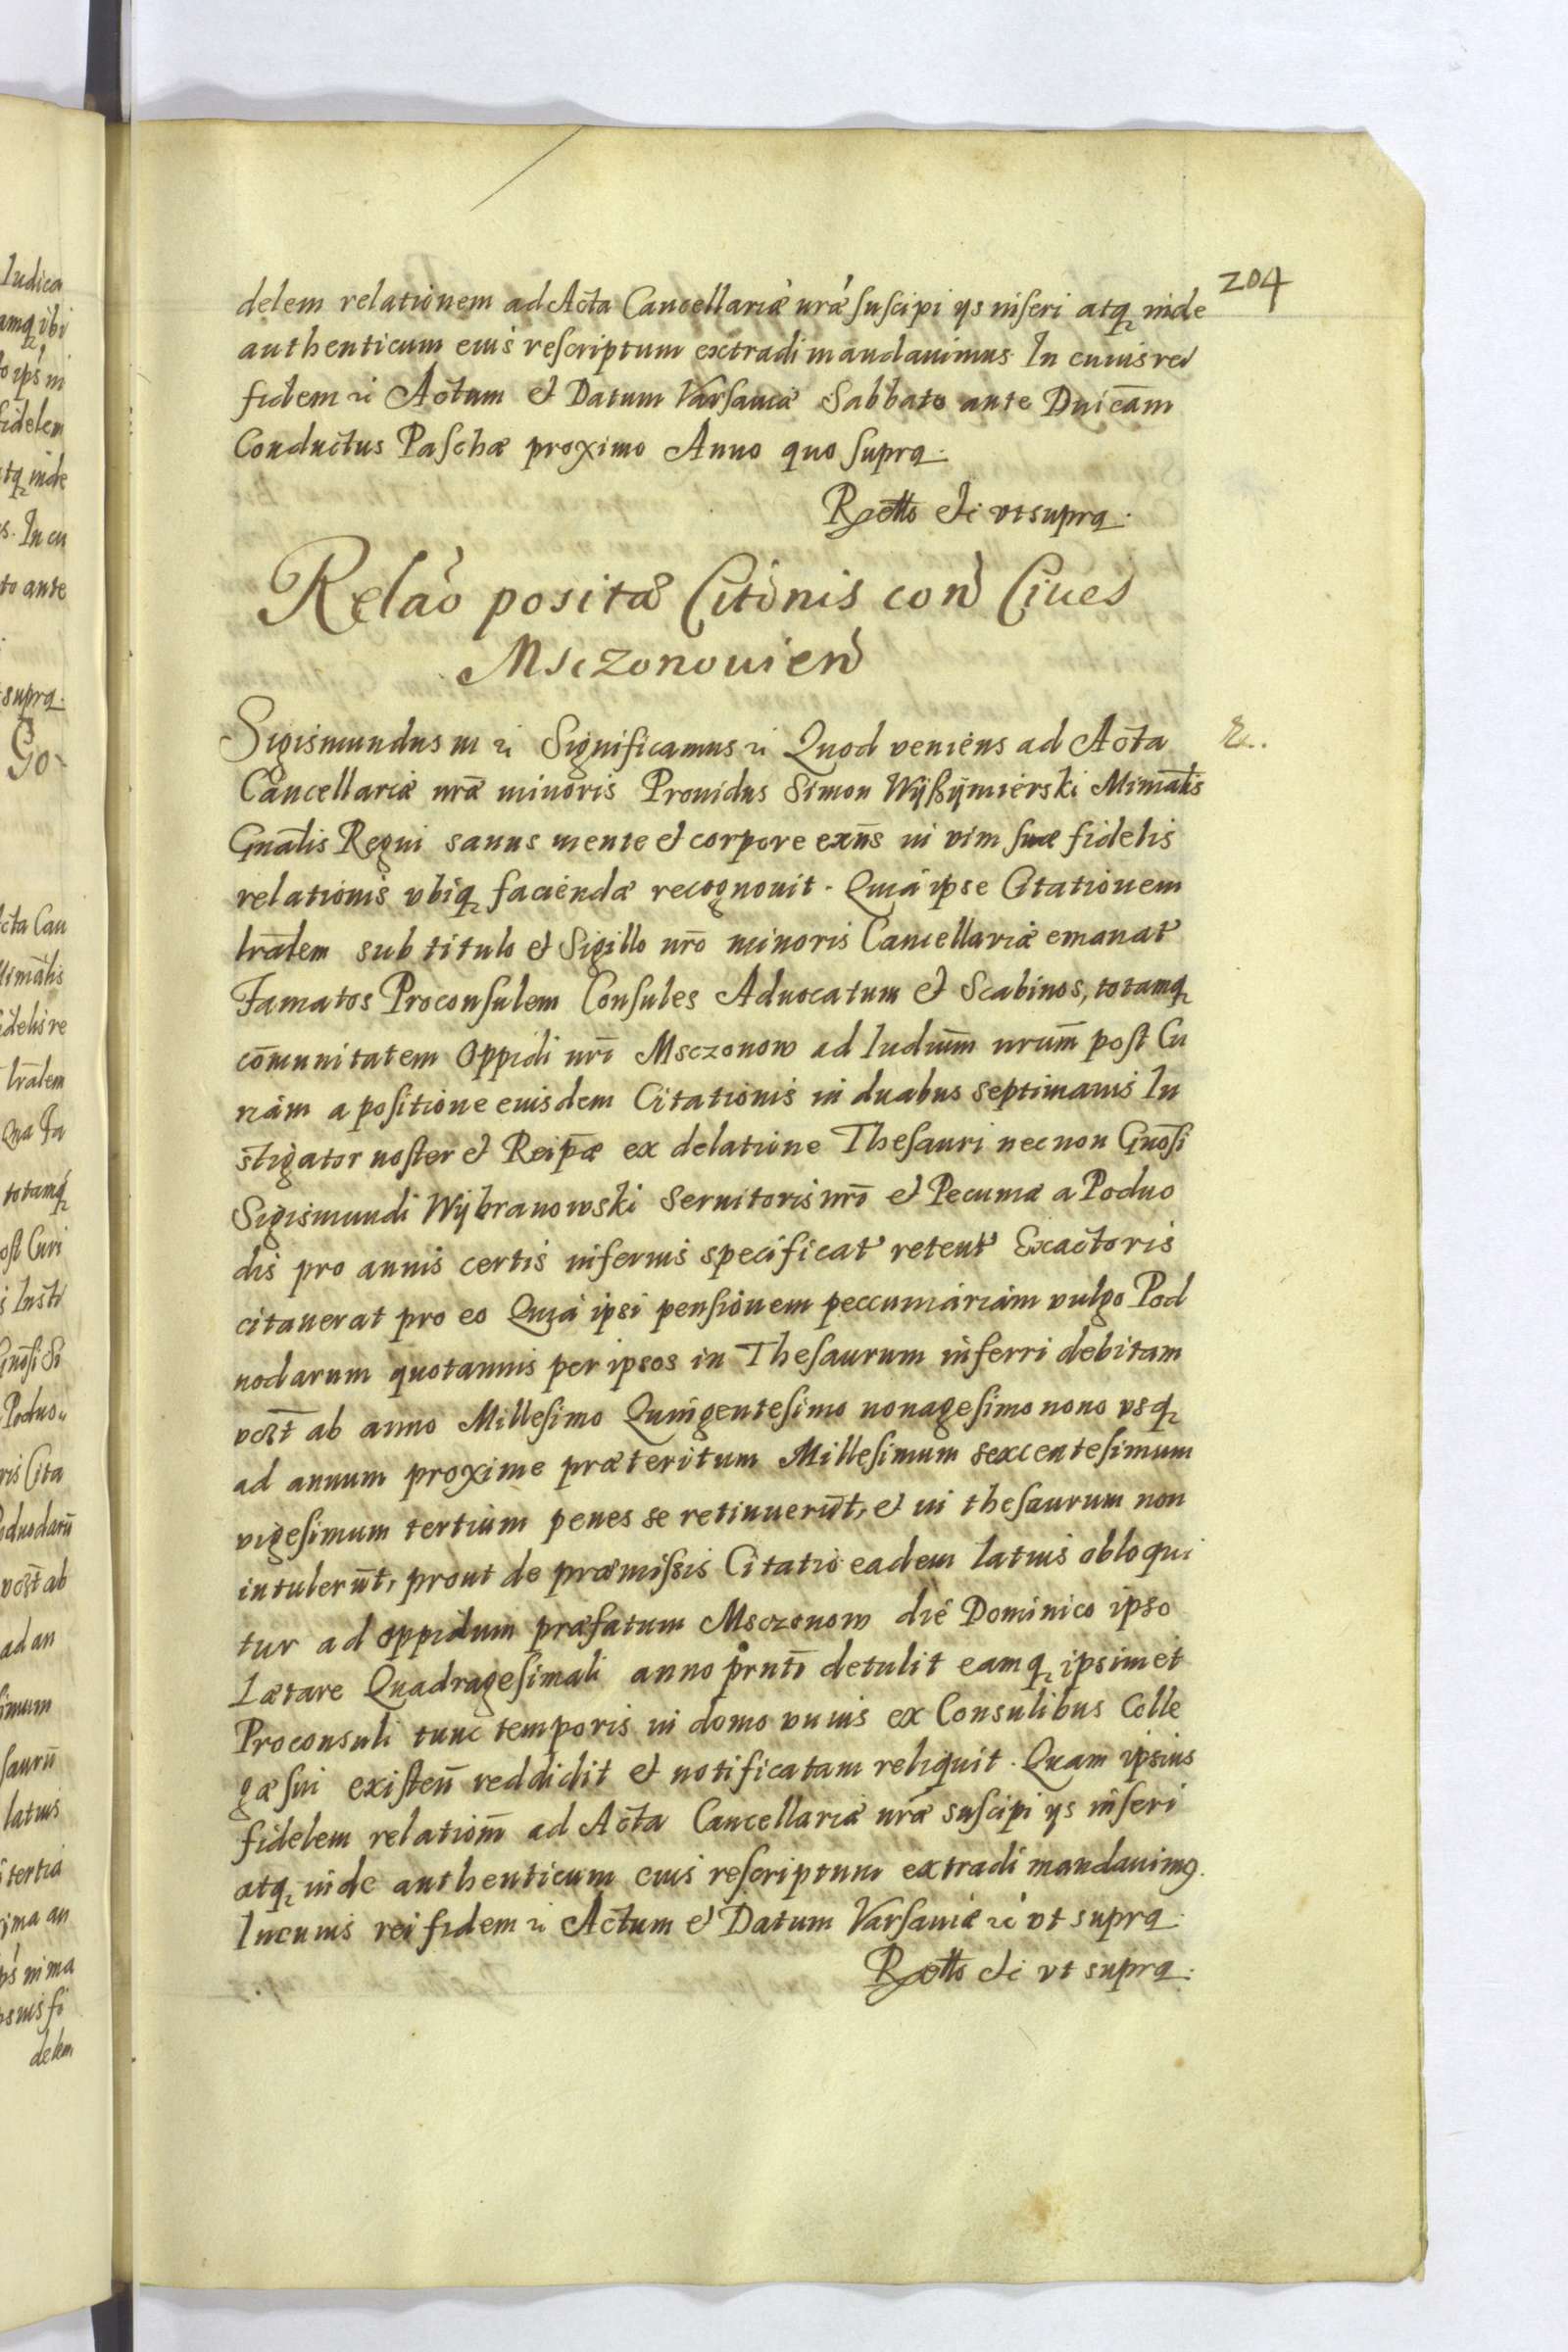 204
delem relationem ad Acta Cancellariæ nræ suscipi ÿs inseri atq inde
authenticum eius rescriptum extradi mandauimus. In cuius rei
fidem etc Actum et Datum Varsauiæ Sabbato ante Dnicam
Conductus Paschæ proximo Anno quo supra.
Rptto etc vt supra.
Relao positæ Citonis con Ciues
Msczonouien
Sigismundus III etc Significamus etc Quod veniens ad Acta
Cancellariæ nræ minoris Prouidus Simon Wÿßÿmierski Minrlis
Gnalis Regni sanus mente et corpore exns in vim suæ fidelis
relationis vbiq faciendæ recognouit. Quia ipse Citationem
lralem sub titulo et Sigillo nro minoris Cancellariæ emanat
Famatos Proconsulem Consules Aduocatum et Scabinos, totamq
comunitatem Oppidi nri Msczonow ad Iudium nrum post Cu
riam a positione eiusdem Citationis in duabus septimanis In
stigator noster et Reipæ ex delatione Thesauri necnon Gnosi
Sigismundi Wÿbranowski Seruitoris nri et Pecuniæ a Poduo
dis pro annis certis inferius specificat retent Exactoris
citauerat pro eo Quia ipsi pensionem peccuniariam vulgo Pod
uodarum quotannis per ipsos in Thesaurum inferri debitam
vczt ab anno Millesimo Quingentesimo nonagesimo nono vsq
ad annum proxime præteritum Millesimum sexcentesimum
vigesimum tertium penes se retinuerut, et in thesaurum non
intulerut, prout de præmissis Citatio eadem latius obloqui
tur ad oppidum præfatum Msczonow die Dominico ipso
Lætare Quadragesimali anno prnti detulit eamq ipsimet
Proconsuli tunc temporis in domo vnius ex Consulibus Colle
gæ sui existen reddidit et notificatam reliquit. Quam ipsius
fidelem relationm ad Acta Cancellariæ nræ suscipi ÿs inseri
atq inde authenticum eius rescriptum extradi mandauimq.
In cuius rei fidem etc Actum et Datum Varsauiæ etc vt supra.
Rptto etc vt supra.